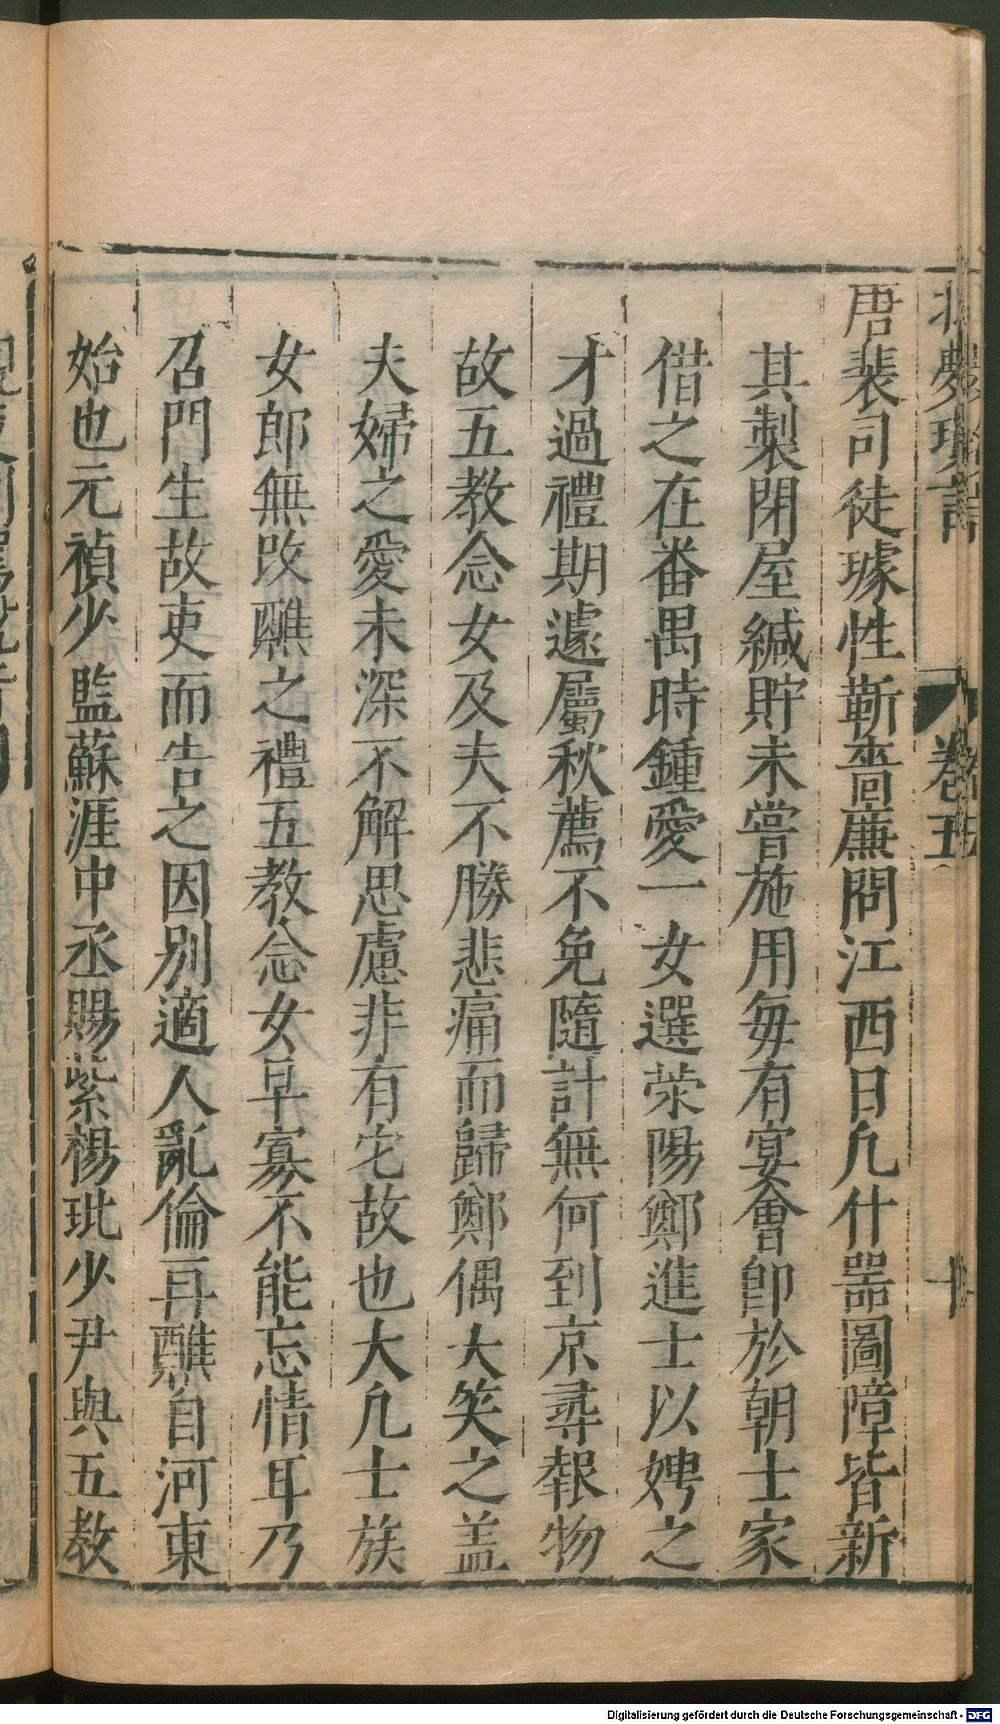 夢瑣言 卷五 十
唐裴司徒璩性靳嗇廉問江西日凢什器圖障皆新
其製閉屋緘貯未嘗施用每有宴會卽於朝士家
借之在番禺時鍾愛一女選滎陽鄭進士以娉之
才過禮期遽屬秋薦不免隨計無何到京尋報物
故五教念女及夫不勝悲痛而歸鄭偶大笑之盖
夫婦之愛未深不解思慮非有它故也大凢士族
女郎無改醮之禮五教念女早寡不能忘情耳乃
召門生故吏而告之因别適人亂倫再醮自河東
始也元禎少監蘇涯中丞賜紫楊玭少尹與五教
Digitalisierung gefördert durch die Deutsche Forschungsgemeinschaft - DFG